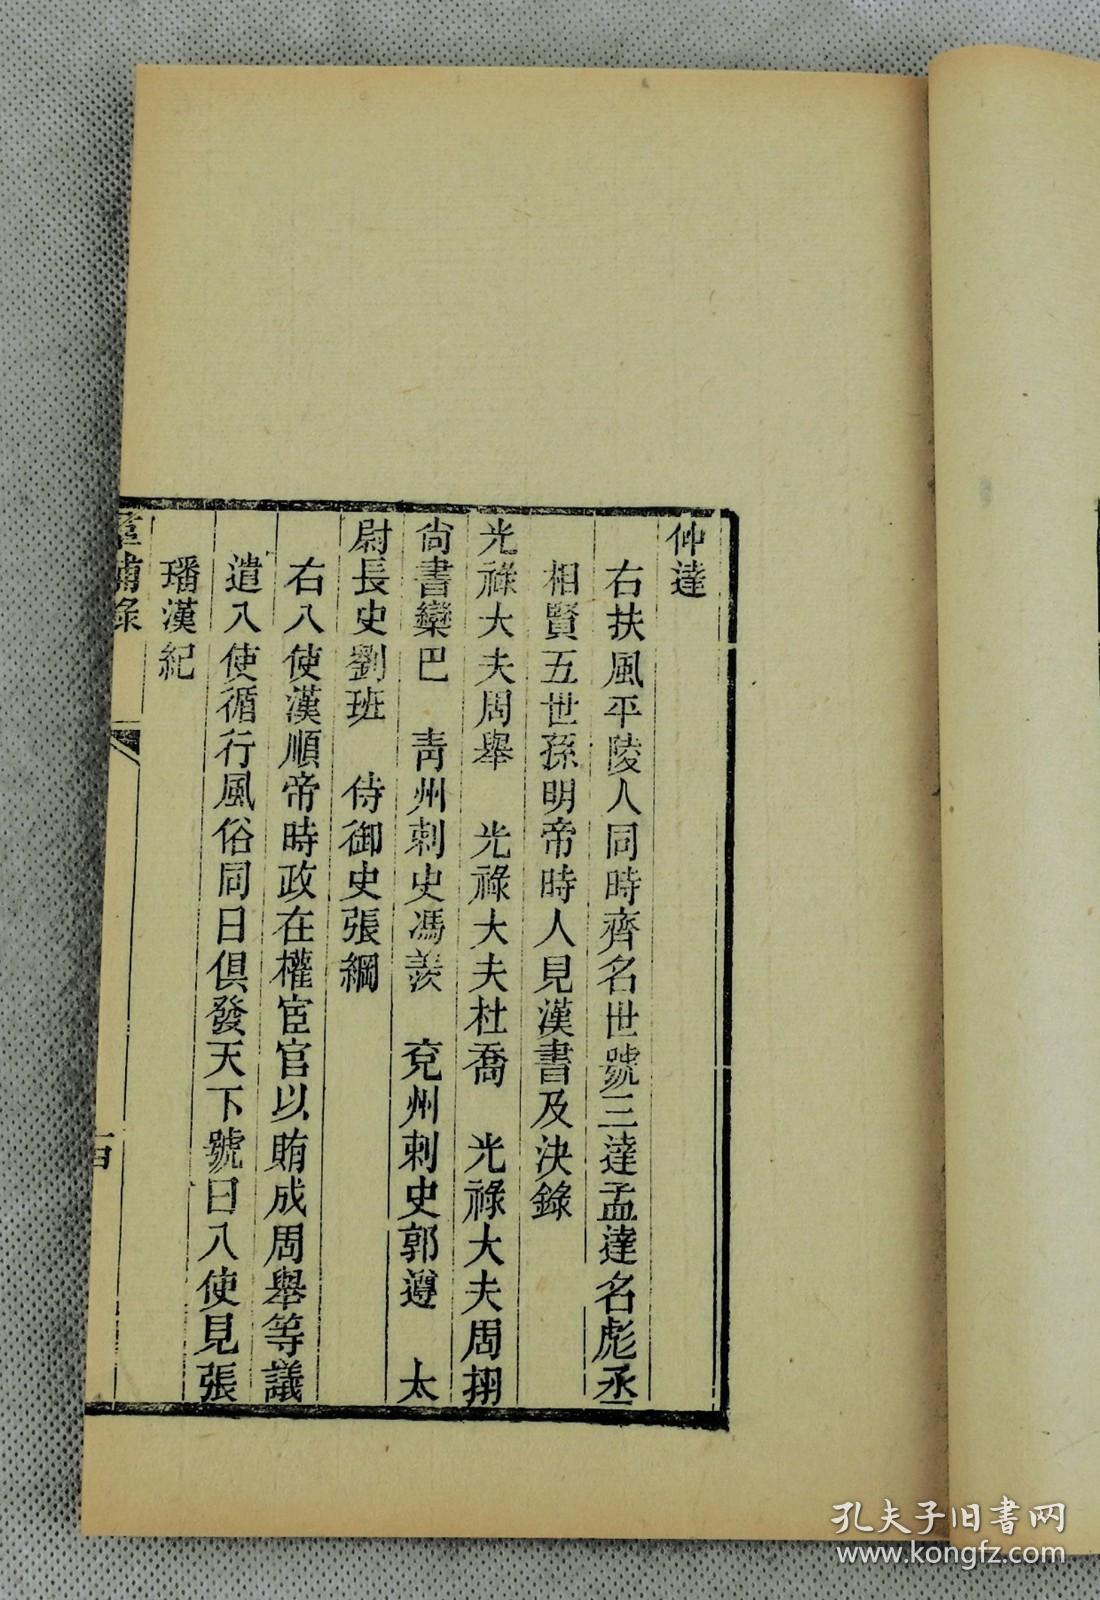 仲達
右扶風平陵人同時齊名世號三達孟達名彪丞
相賢五世孫明帝時人見漢書及決錄
光祿大夫周舉　光祿大夫杜喬　光祿大夫周栩
尙書欒巴　靑州刺史馮羨　兗州刺史郭遵　太
尉長史劉班　侍御史張綱
右八使漢順帝時政在權宦官以賄成周舉等議
遣八使循行風俗同日俱發天下號曰八使見張
璠漢紀
羣輔錄
孔夫子旧書网
www.kongfz.com